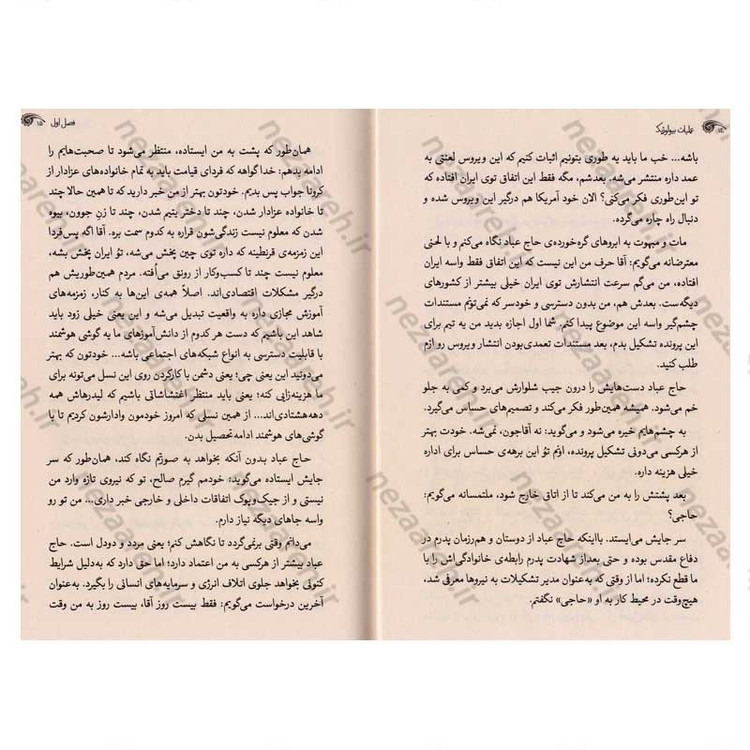 عملیات بیولوژیک
باشه... خب ما باید یه طوری بتونیم اثبات کنیم که این ویروس لعنتی به
عمد داره منتشر می‌شه. بعدشم، مگه فقط این اتفاق توی ایران افتاده که
تو این‌طوری فکر می‌کنی؟ الان خود آمریکا هم درگیر این ویروس شده و
دنبال راه چاره می‌گرده.
مات و مبهوت به ابروهای گره‌خورده‌ی حاج عباد نگاه می‌کنم و با لحنی
معترضانه می‌گویم: آقا حرف من این نیست که این اتفاق فقط واسه ایران
افتاده، من می‌گم سرعت انتشارش توی ایران خیلی بیشتر از کشورهای
دیگه‌ست. بعدش هم، من بدون دسترسی و خودسر که نمی‌تونم مستندات
چشم‌گیر واسه این موضوع پیدا کنم. شما اول اجازه بدید من یه تیم برای
این پرونده تشکیل بدم، بعد مستندات تعمدی‌بودن انتشار ویروس رو ازم
طلب کنید.
حاج عباد دست‌هایش را درون جیب شلوارش می‌برد و کمی به جلو
خم می‌شود. همیشه همین‌طور فکر می‌کند و تصمیم‌های حساس می‌گیرد.
به چشم‌هایم خیره می‌شود و می‌گوید: نه آقاجون، نمی‌شه. خودت بهتر
از هرکسی می‌دونی تشکیل پرونده، اونم تو این برهه‌ی حساس برای اداره
خیلی هزینه داره.
بعد پشتش را به من می‌کند تا از اتاق خارج شود، ملتمسانه می‌گویم:
حاجی؟
سر جایش می‌ایستد. بااینکه حاج عباد از دوستان و هم‌رزمان پدرم در
دفاع مقدس بوده و حتی بعداز شهادت پدرم رابطه‌ی خانوادگی‌اش را با
ما قطع نکرده؛ اما از وقتی که به‌عنوان مدیر تشکیلات به نیروها معرفی شد،
هیچ‌وقت در محیط کار به او «حاجی» نگفتم.
فصل اول ۱۵
همان‌طور که پشت به من ایستاده، منتظر می‌شود تا صحبت‌هایم را
ادامه بدهم: خدا گواهه که فردای قیامت باید به تمام خانواده‌های عزادار از
کرونا جواب پس بدیم. خودتون بهتر از من خبر دارید که تا همین حالا چند
تا خانواده عزادار شدن، چند تا دختر یتیم شدن، چند تا زنِ جوون، بیوه
شدن که معلوم نیست زندگی‌شون قراره به کدوم سمت بره. آقا اگه پس‌فردا
این زمزمه‌ی قرنطینه که داره توی چین پخش می‌شه، تو ایران پخش بشه،
معلوم نیست چند تا کسب‌وکار از رونق می‌اُفته. مردم همین‌طوریش هم
درگیر مشکلات اقتصادی‌اند. اصلاً همه‌ی این‌ها به کنار، زمزمه‌های
آموزش مجازی داره به واقعیت تبدیل می‌شه و این یعنی خیلی زود باید
شاهد این باشیم که دست هر کدوم از دانش‌آموزهای ما یه گوشی هوشمند
با قابلیت دسترسی به انواع شبکه‌های اجتماعی باشه... خودتون که بهتر
می‌دونید این یعنی چی؛ یعنی دشمن با کارکردن روی این نسل می‌تونه برای
ما هزینه‌زایی کنه؛ یعنی باید منتظر اغتشاشاتی باشیم که لیدرهاش همه
دهه‌هشتادی‌اند... از همین نسلی که امروز خودمون وادارشون کردیم تا با
گوشی‌های هوشمند ادامه‌تحصیل بدن.
حاج عباد بدون آنکه بخواهد به صورتم نگاه کند، همان‌طور که سر
جایش ایستاده می‌گوید: خودمم گیرم صالح، تو که نیروی تازه وارد من
نیستی و از جیک‌وپوک اتفاقات داخلی و خارجی خبر داری... من تو رو
واسه جاهای دیگه نیاز دارم.
می‌دانم وقتی برنمی‌گردد تا نگاهش کنم؛ یعنی مردد و دودل است. حاج
عباد بیشتر از هرکسی به من اعتماد دارد؛ اما حتی دارد که به‌دلیل شرایط
کنونی بخواهد جلوی اتلاف انرژی و سرمایه‌های انسانی را بگیرد. به‌عنوان
آخرین درخواست می‌گویم: فقط بیست روز آقا، بیست روز به من وقت
nezaareh.ir